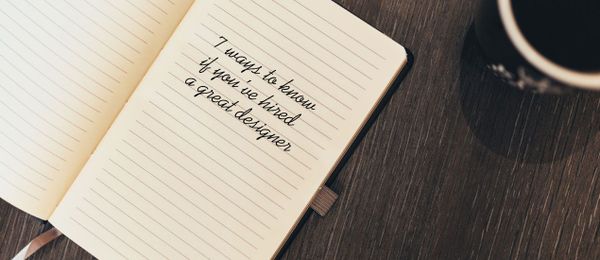 7 ways to know
if you've hired
a great designer